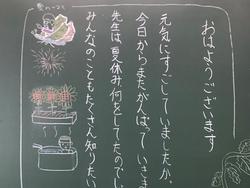 おはようございます
元気にすごしていましたか。
今日からまたがんばっていきま
先生は、夏休み何をしてたのでし
みんなのこともたくさん知りたい